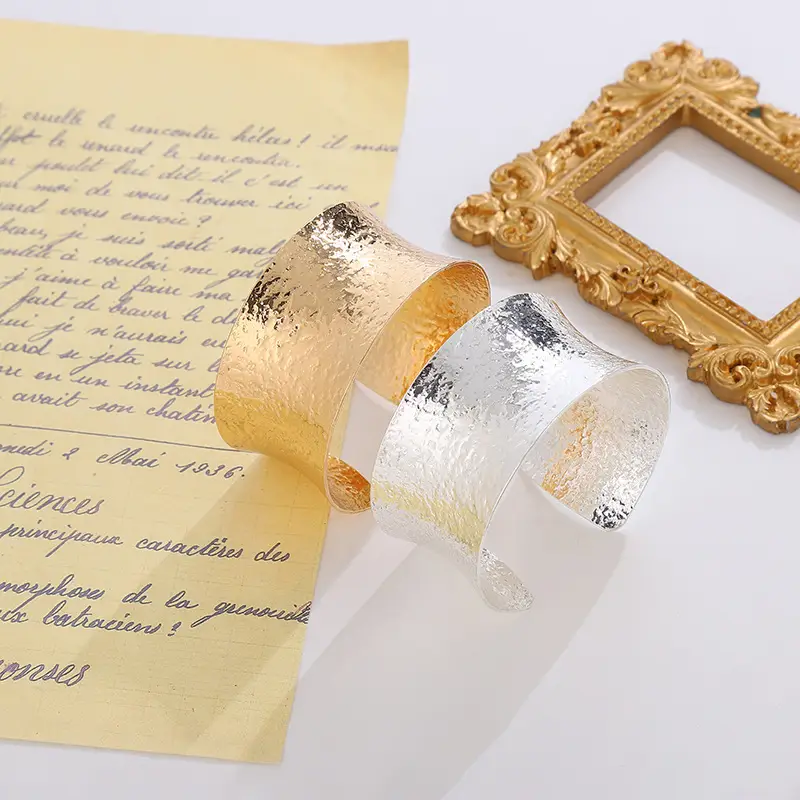 cruelle le rencontre hélas! il
le renard le rencontra.
poulet lui dit: il c'est un
ur moi de vous trouver ici
nard vous envoie?
beau, je suis sorti mal
entété à vouloir me
j'aime à faire ma
fait de braver le
ui je n'aurais
nard se jeta sur l
ore en un instant
avait son
medi 2 Mai 1936.
Sciences
principaux caractères des
morphoses de la grenouille
ux batraciens?
onses